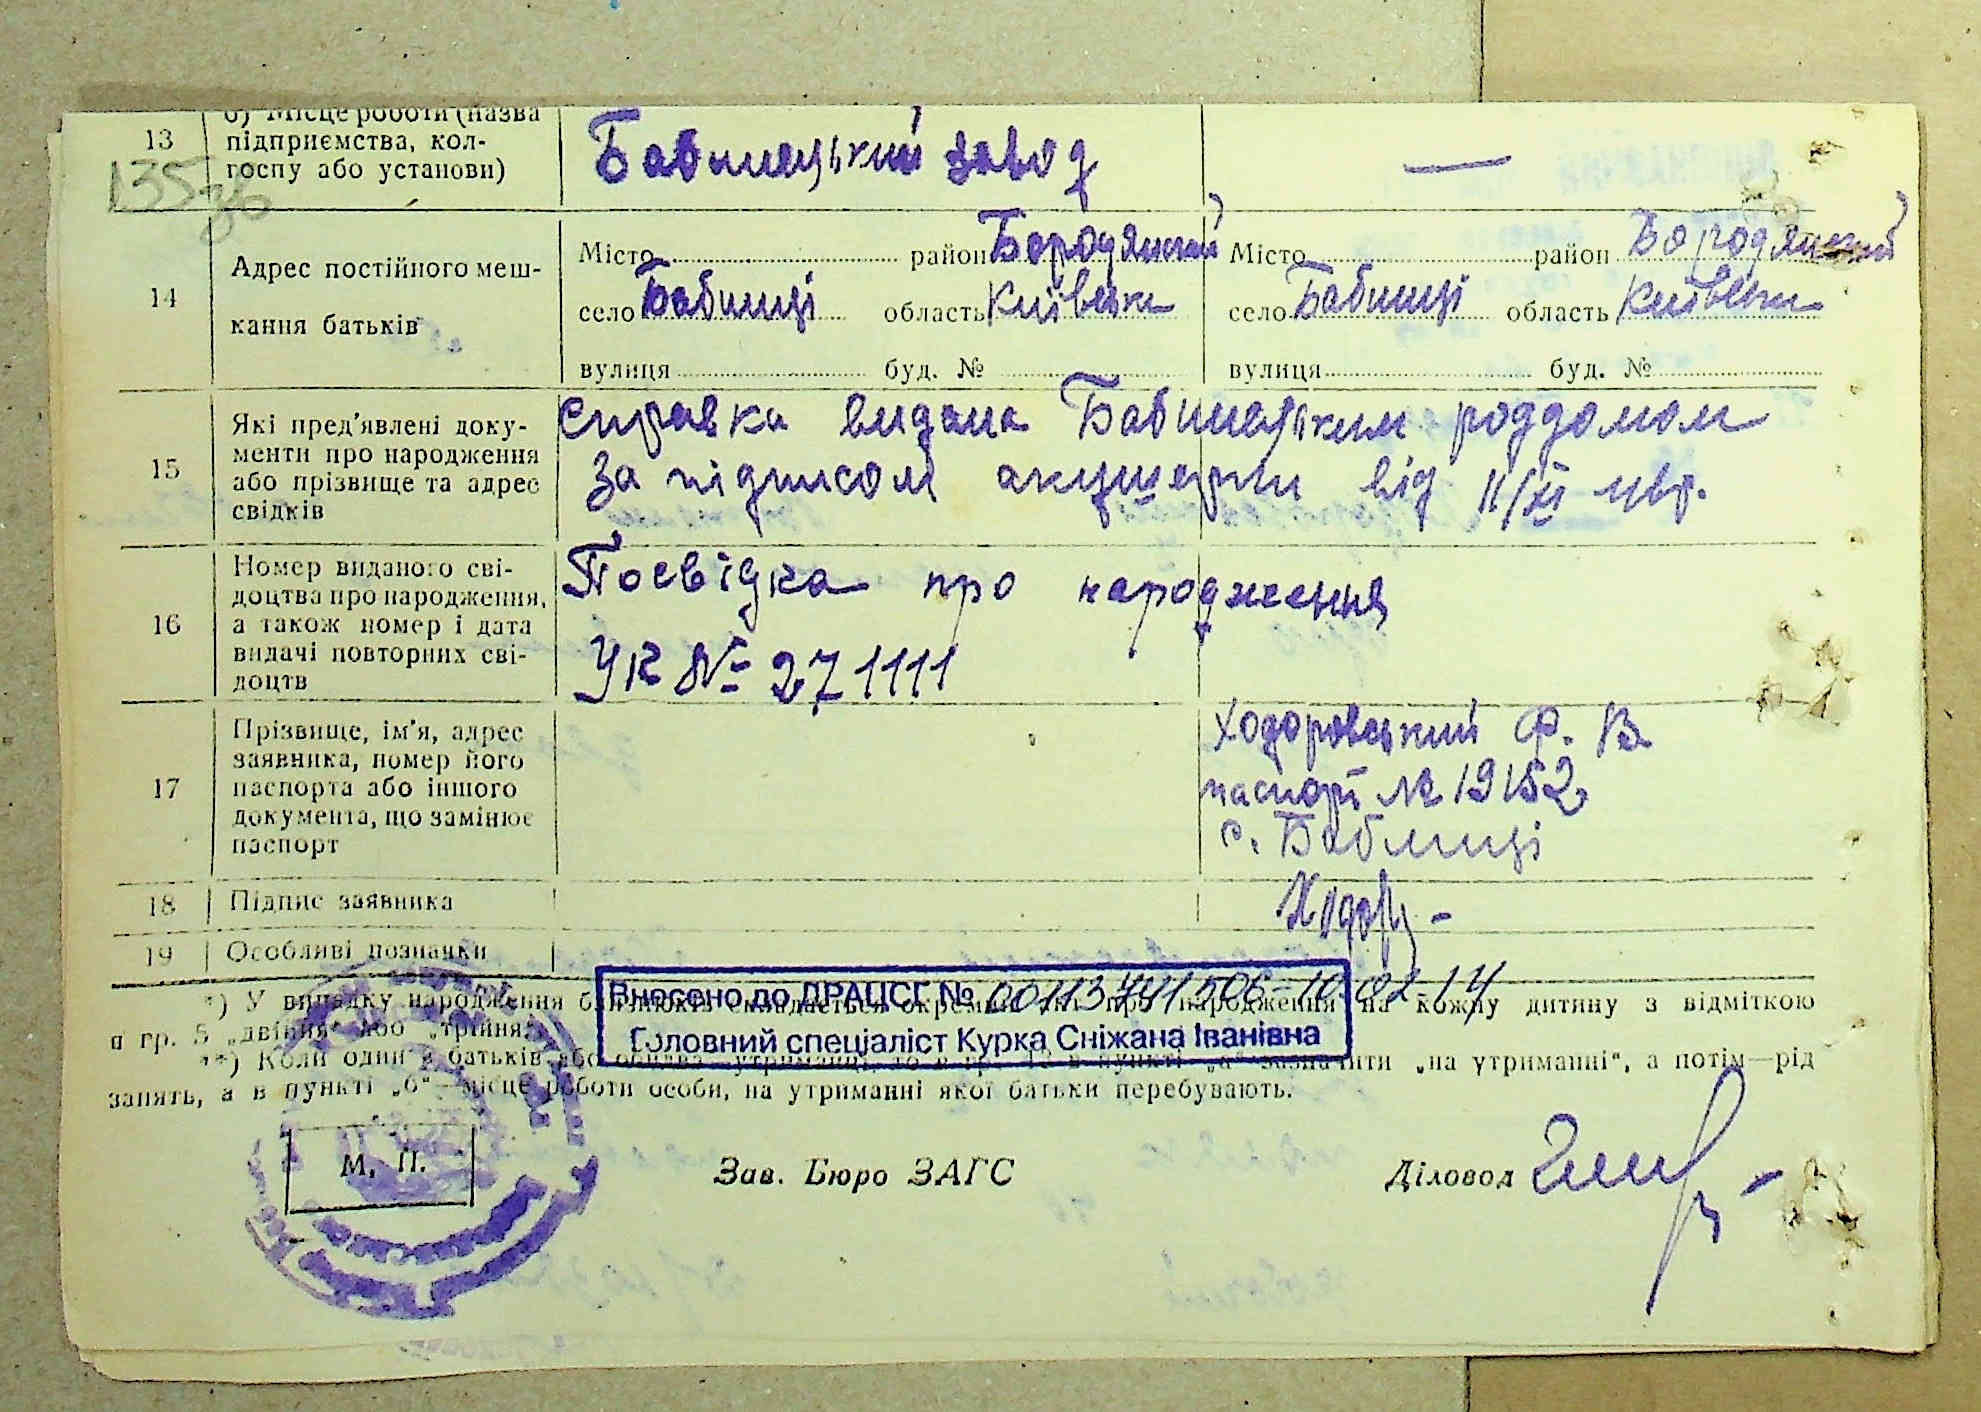 13
б) Місце роботи (назва
підприємства, кол-
госпу або установи)
Бабинецький завод
—
135 зв
14
Адрес постійного меш-
кання батьків
Місто район Бородянский
село Бабинці область Київська
вулиця буд. №
Місто район Бородянский
село Бабинці область Київська
вулиця буд. №
15
Які пред'явлені доку-
менти про народження
або прізвище та адрес
свідків
справка видана Бабинецьким роддомом
за підписом акушерки від 11/XII
16
Номер виданого сві-
доцтва про народження,
а також номер і дата
видачі повторних сві-
доцтв
Посвідка про народження
УК № 271111
17
Прізвище, ім'я, адрес
заявника, номер його
паспорта або іншого
документа, що замінює
паспорт
Ходоровський Ф. В.
паспорт № 19152
с. Бабинці
18
Підпис заявника
Ходор
19
Особливі позначки
*) У випадку народження близнюків складається окремий акт про народження на кожну дитину з відміткою
в гр. 5 „двійня" або „трійня".
**) Коли один з батьків або обидва утриманці, то в гр. 13 в пункті „а" зазначити „на утриманні", а потім—рід
занять, а в пункті „б"—місце роботи особи, на утриманні якої батьки перебувають.
Внесено до ДРАЦСГ № 00113741506-10.02.14
Головний спеціаліст Курка Сніжана Іванівна
М. П.
Зав. Бюро ЗАГС
Діловод